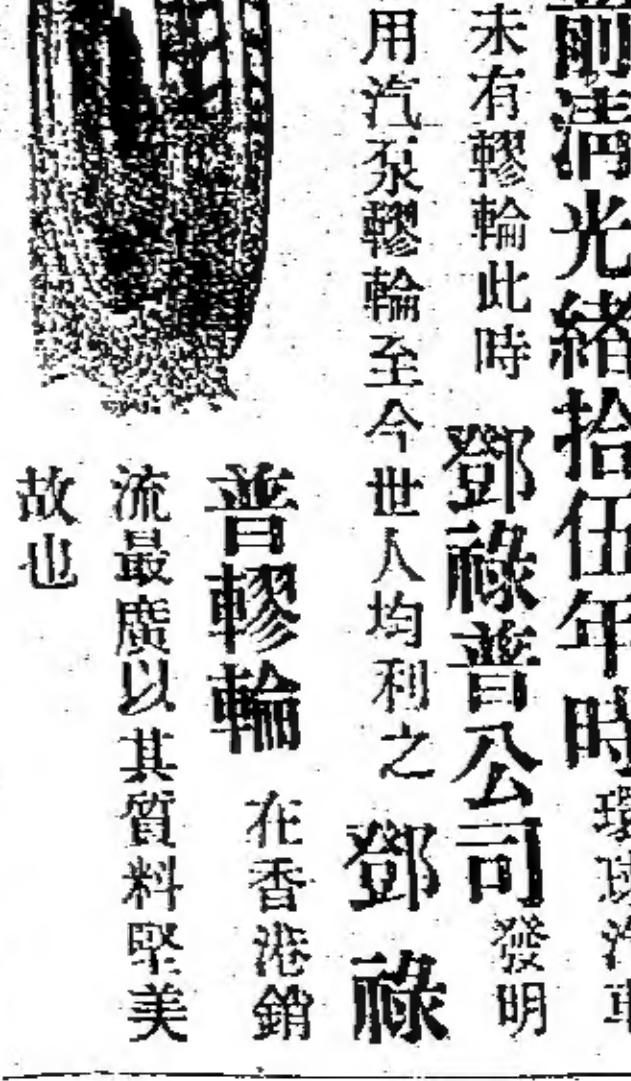 前清光緒拾伍年時環球汽車
未有轇輪此時鄧祿普公司發明
用汽泵轇輪至今世人均利之鄧祿
普轇輪在香港銷
流最廣以其質料堅美
故也